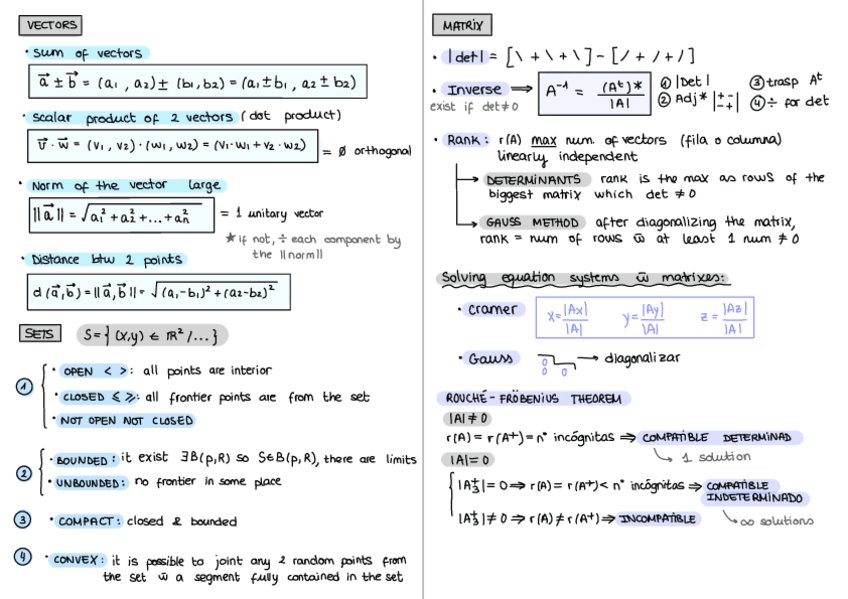 VECTORS
· Sum of vectors
a⃗ ± b⃗ = (a₁, a₂) ± (b₁, b₂) = (a₁ ± b₁, a₂ ± b₂)
· Scalar product of 2 vectors (dot product)
v⃗ · w⃗ = (v₁, v₂) · (w₁, w₂) = (v₁·w₁ + v₂·w₂) = ∅ orthogonal
· Norm of the vector large
||a⃗|| = √(a₁² + a₂² + ... + aₙ²) = 1 unitary vector
★ if not, ÷ each component by
the ||norm||
· Distance btw 2 points
d(a⃗, b⃗) = ||a⃗, b⃗|| = √((a₁-b₁)² + (a₂-b₂)²)
SETS S = { (x,y) ∈ ℝ² / ... }
① · OPEN < > : all points are interior
· CLOSED ≤ ≥: all frontier points are from the set
· NOT OPEN NOT CLOSED
② · BOUNDED: it exist ∃B(p,R) so S∈B(p,R), there are limits
· UNBOUNDED: no frontier in some place
③ · COMPACT: closed & bounded
④ · CONVEX: it is possible to joint any 2 random points from
the set w̄ a segment fully contained in the set
MATRIX
· |det| = [\ + \ + \] - [/ + / + /]
· Inverse ⟹ A⁻¹ = (Aᵗ)* / |A| ① |Det| ③ trasp Aᵗ
exist if det≠0 ② Adj* |+ - - +| ④ ÷ for det
· Rank: r(A) max num. of vectors (fila o columna)
linearly independent
→ DETERMINANTS rank is the max as rows of the
biggest matrix which det ≠ 0
→ GAUSS METHOD after diagonalizing the matrix,
rank = num of rows w̄ at least 1 num ≠ 0
Solving equation systems w̄ matrixes:
· Cramer x = |Ax| / |A| y = |Ay| / |A| z = |Az| / |A|
· Gauss 0 0 0 → diagonalizar
ROUCHÉ-FRÖBENIUS THEOREM
|A| ≠ 0
r(A) = r(A⁺) = nº incógnitas ⟹ COMPATIBLE DETERMINAD
↳ 1 solution
|A| = 0
|A₃⁺| = 0 ⟹ r(A) = r(A⁺) < nº incógnitas ⟹ COMPATIBLE
INDETERMINADO
|A₃⁺| ≠ 0 ⟹ r(A) ≠ r(A⁺) ⟹ INCOMPATIBLE
↳ ∞ solutions